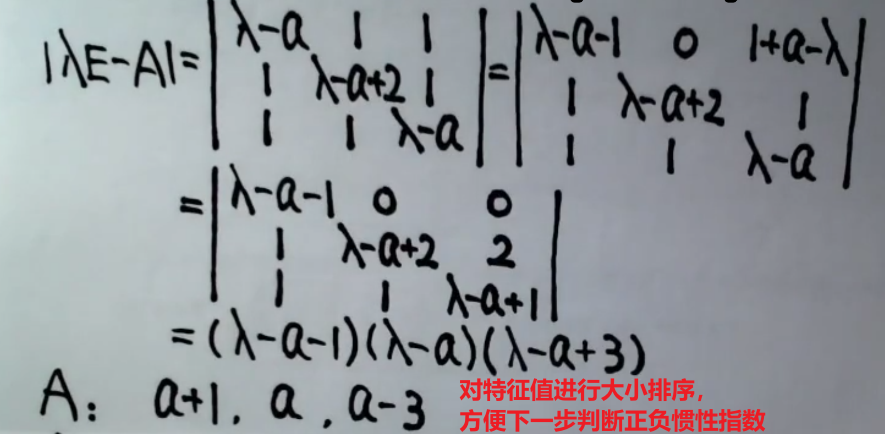 |λE-A|=|λ-a 1 1|=|λ-a-1 0 1+a-λ|
|1 λ-a+2 1| |1 λ-a+2 1|
|1 1 λ-a| |1 1 λ-a|
=|λ-a-1 0 0|
|1 λ-a+2 2|
|1 1 λ-a+1|
=(λ-a-1)(λ-a)(λ-a+3)
A: a+1, a, a-3
对特征值进行大小排序，
方便下一步判断正负惯性指数